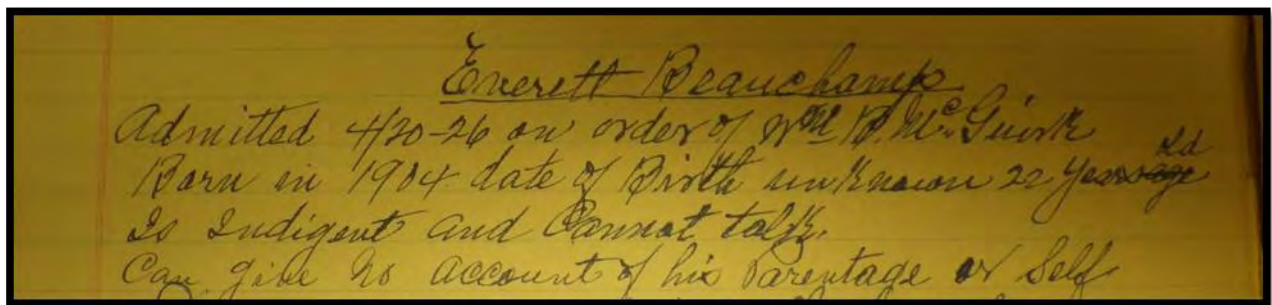 Everett Beauchamp
Admitted 4/20-26 on order of Wm B. McGuirk
Born in 1904 date of Birth unknown 22 years
Is Indigent and Cannot talk.
Can give no account of his Parentage or Self